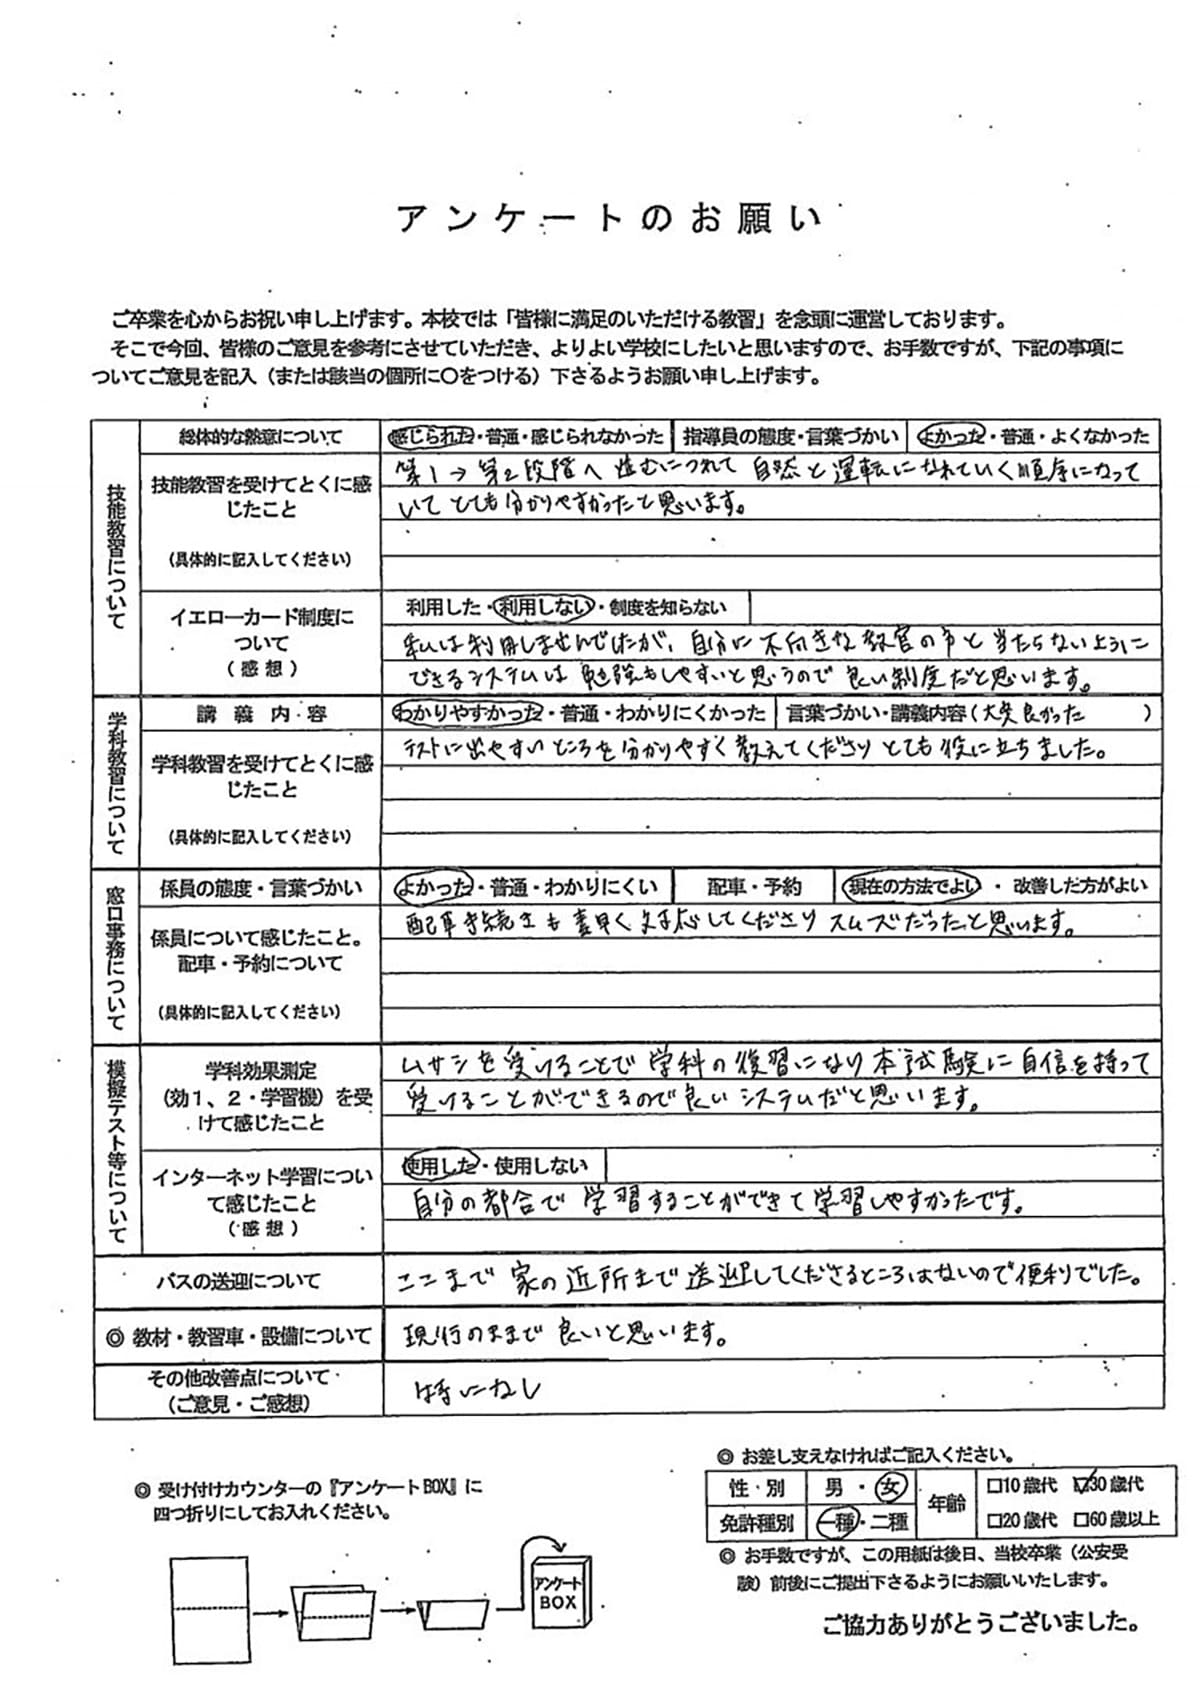 アンケートのお願い
ご卒業を心からお祝い申し上げます。本校では「皆様に満足のいただける教習」を念頭に運営しております。
そこで今回、皆様のご意見を参考にさせていただき、よりよい学校にしたいと思いますので、お手数ですが、下記の事項に
ついてご意見を記入（または該当の個所に〇をつける）下さるようお願い申し上げます。
技能教習について
総体的な熱意について
感じられた・普通・感じられなかった
指導員の態度・言葉づかい
よかった・普通・よくなかった
技能教習を受けてとくに感
じたこと
（具体的に記入してください）
第1→第2段階へ進むにつれて自然と運転になれていく順序になって
いてとても分かりやすかったと思います。
イエローカード制度に
ついて
（感想）
利用した・利用しない・制度を知らない
私は利用しませんでしたが、自分に不向きな教官の方と当たらないように
できるシステムは勉強もしやすいと思うので良い制度だと思います。
学科教習について
講義内容
わかりやすかった・普通・わかりにくかった
言葉づかい・講義内容（大変良かった）
学科教習を受けてとくに感
じたこと
（具体的に記入してください）
テストに出やすいところを分かりやすく教えてくださりとても役に立ちました。
窓口事務について
係員の態度・言葉づかい
よかった・普通・わかりにくい
配車・予約
現在の方法でよい・改善した方がよい
係員について感じたこと。
配車・予約について
（具体的に記入してください）
配車手続きも素早く対応してくださりスムーズだったと思います。
模擬テスト等について
学科効果測定
（効1、2・学習機）を受
けて感じたこと
ムサシを受けることで学科の復習になり本試験に自信を持って
受けることができるので良いシステムだと思います。
インターネット学習につい
て感じたこと
（感想）
使用した・使用しない
自分の都合で学習することができて学習しやすかったです。
バスの送迎について
ここまで家の近所まで送迎してくださるところはないので便利でした。
◎ 教材・教習車・設備について
現行のままで良いと思います。
その他改善点について
（ご意見・ご感想）
特になし
◎ 受け付けカウンターの『アンケートBOX』に
四つ折りにしてお入れください。
アンケート
BOX
◎ お差し支えなければご記入ください。
性・別
男・女
年齢
□10歳代 ☑30歳代
免許種別
一種・二種
□20歳代 □60歳以上
◎ お手数ですが、この用紙は後日、当校卒業（公安受
験）前後にご提出下さるようにお願いいたします。
ご協力ありがとうございました。